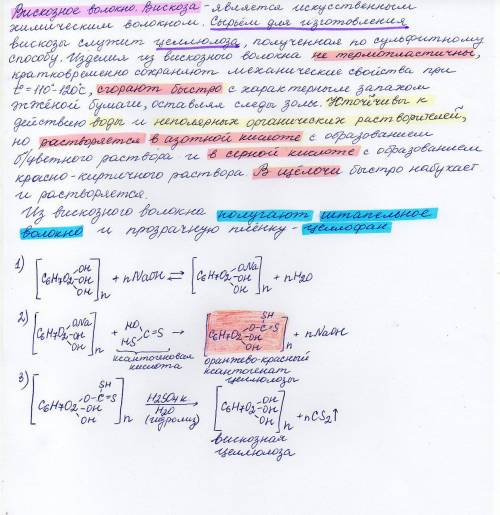 Вискозное волокно. Вискоза - является искусственным
химическим волокном. Сырьём для изготовления
вискозы служит целлюлоза, полученная по сульфитному
способу. Изделия из вискозного волокна не термопластичны,
кратковременно сохраняют механические свойства при
t°-110°-120°С, сгорают быстро с характерным запахом
жжёной бумаги, оставляя следы золы. Устойчивы к
действию воды и неполярных органических растворителей,
но растворяется в азотной кислоте с образованием
б/цветного раствора и в серной кислоте с образованием
красно-кирпичного раствора. В щёлочи быстро набухает
и растворяется.
Из вискозного волокна получают штапельное
волокно и прозрачную плёнку - целлофан
1) [C6H7O2 -OH -OH -OH]n + nNaOH ⇄ [C6H7O2 -ONa -OH -OH]n + nH2O
2) [C6H7O2 -ONa -OH -OH]n + HO HS C=S → [C6H7O2 -O-C=S SH -OH -OH]n + nNaOH
ксантогеновая
кислота
оранжево-красный
ксантогенат
целлюлозы
3) [C6H7O2 -O-C=S SH -OH -OH]n H2SO4 к H2O (гидролиз) → [C6H7O2 -OH -OH -OH]n + nCS2↑
вискозная
целлюлоза